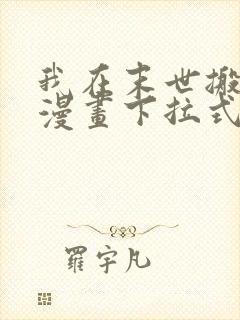 我在末世搬
漫畫下拉式
羅宇凡